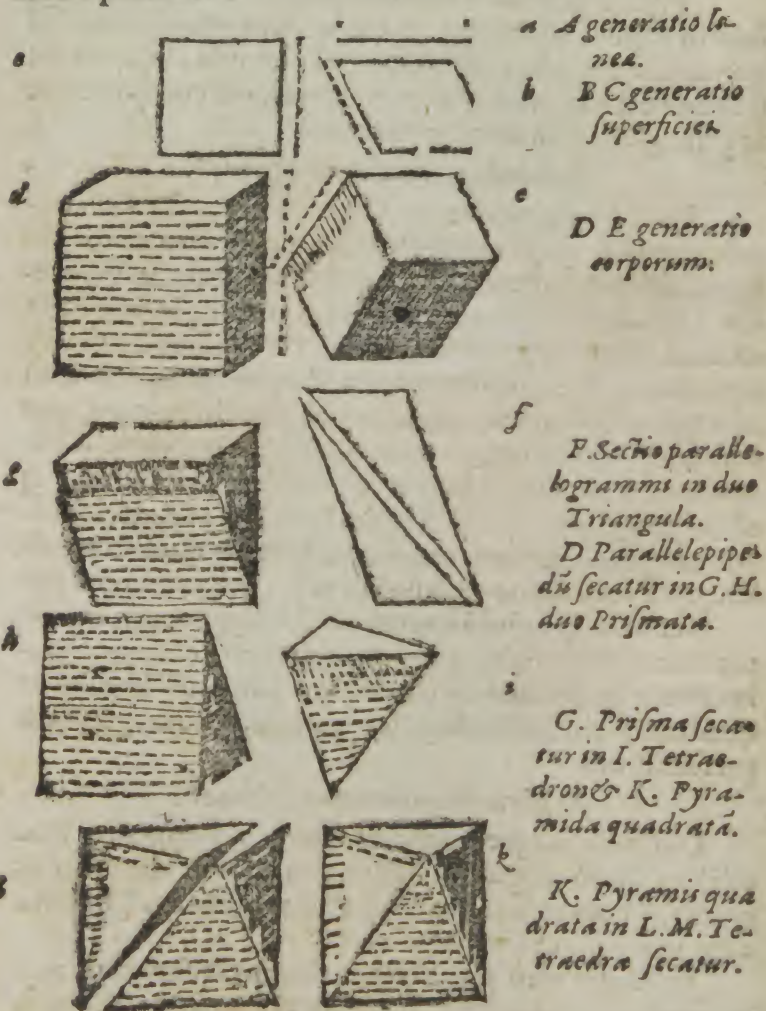 a A generatio li-
nea.
b B C generatio
ſuperficiei.
c
d
e
D E generatio
corporum.
f
F. Sectio paralle-
logrammi in duo
Triangula.
D Parallelepipe-
dū ſecatur in G. H.
duo Priſmata.
g
h
i
G. Priſma ſeca-
tur in I. Tetrae-
dron & K. Pyra-
mida quadratā.
k
K. Pyramis qua
drata in L. M. Te-
traedra ſecatur.